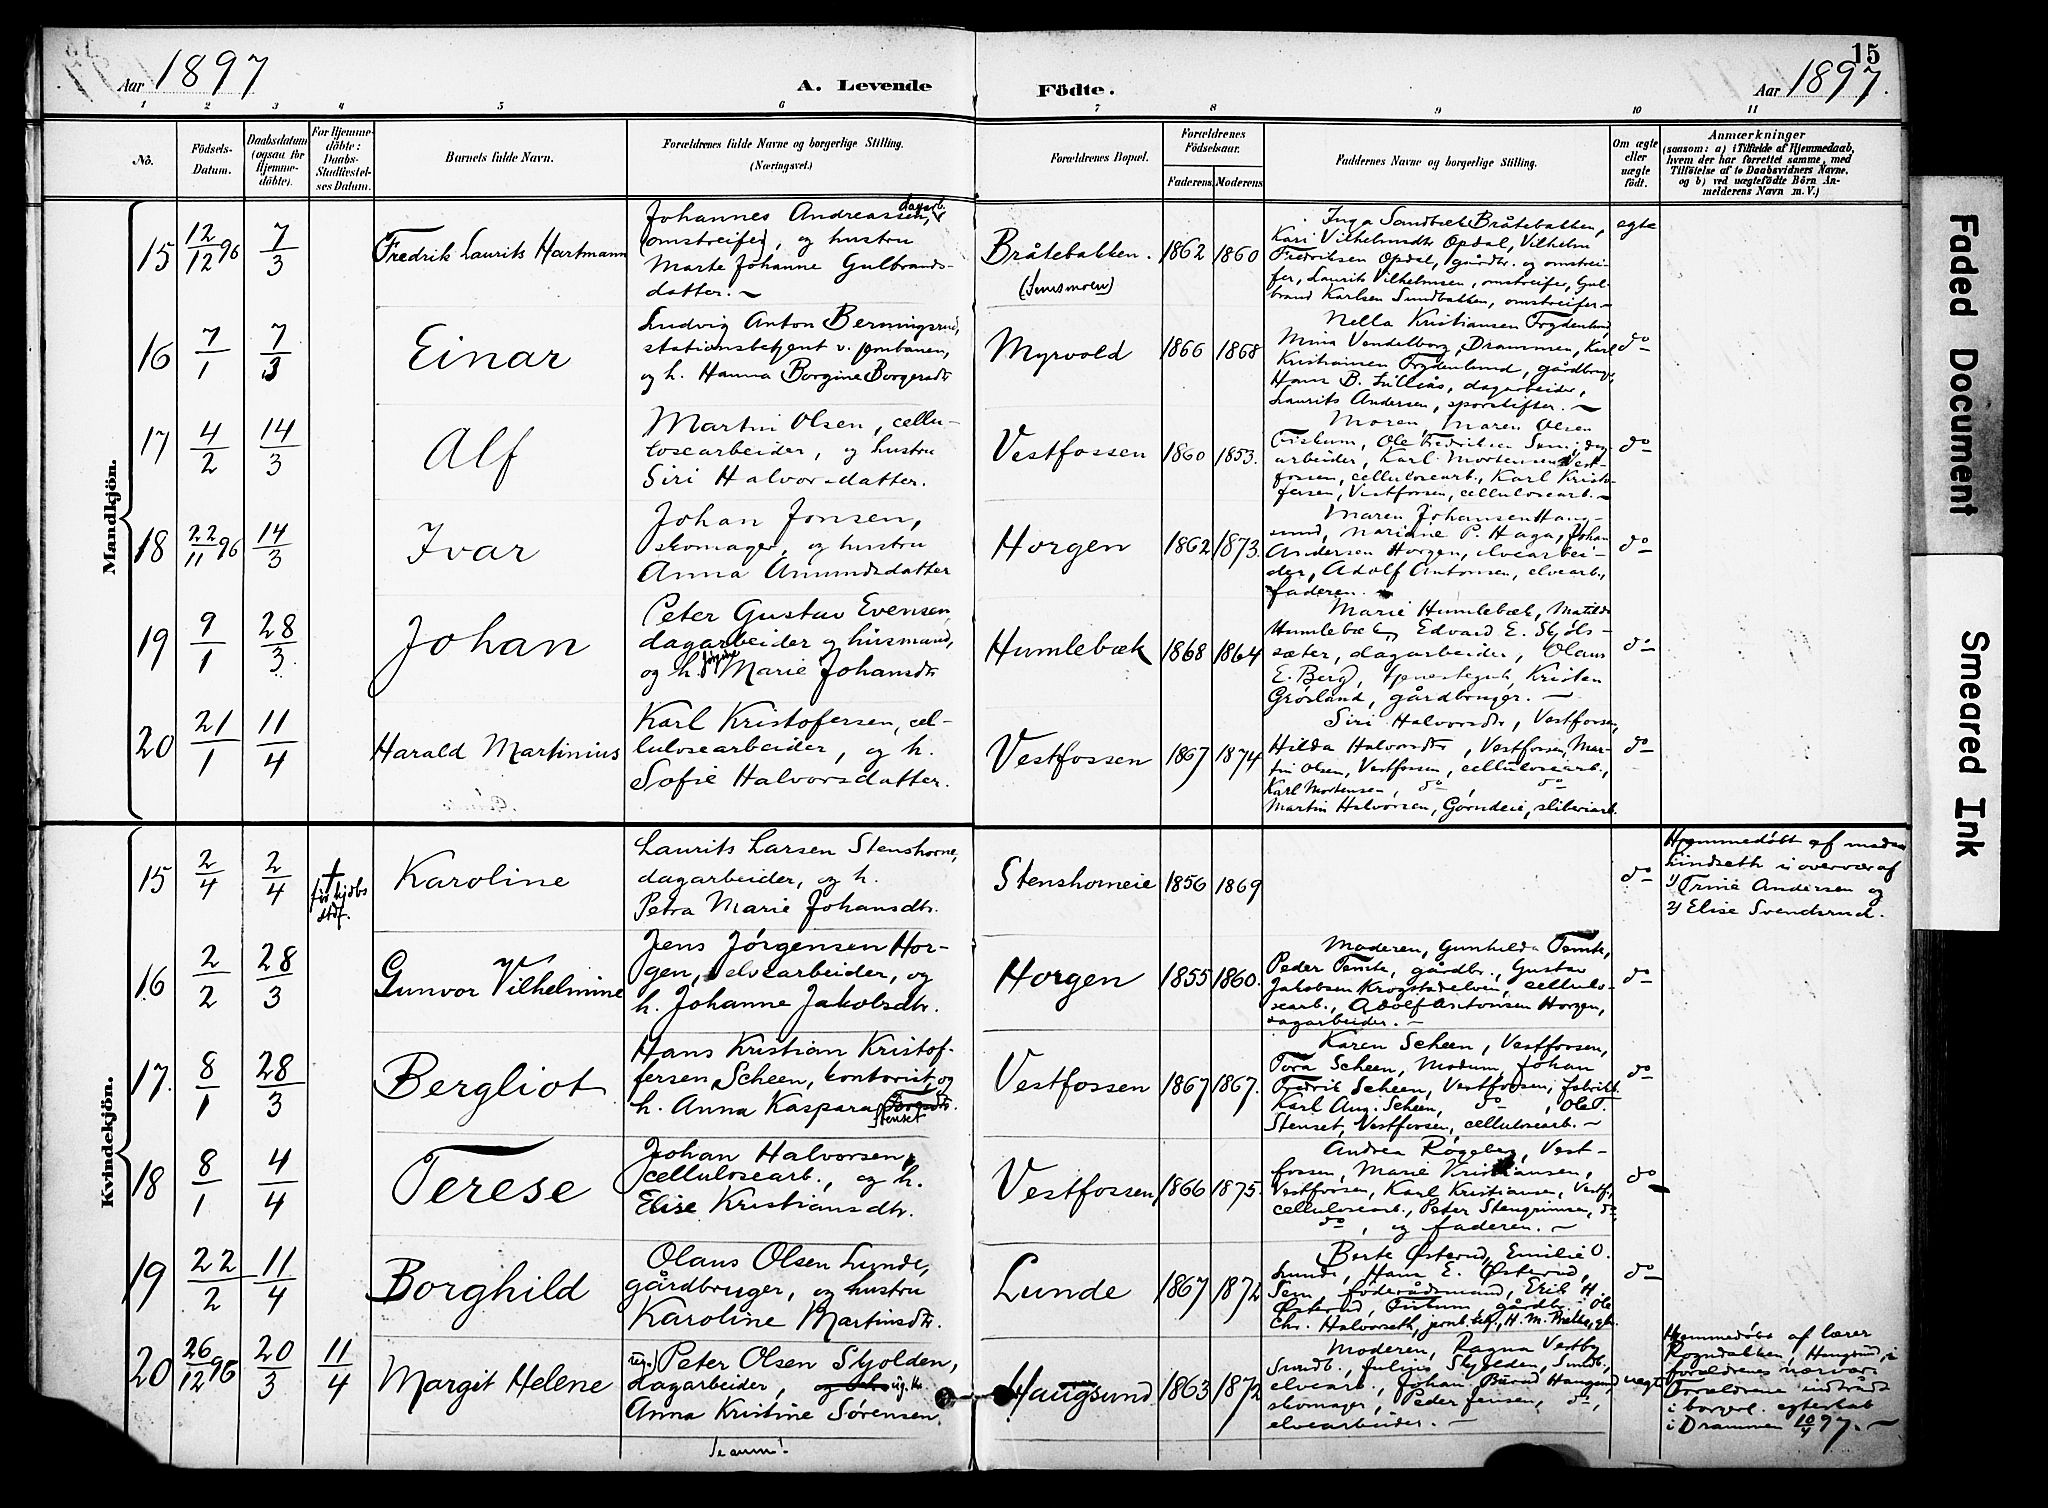 15
Aar 1897
A. Levende
Födte.
Aar 1897.
1 2 3 4 5 6 7 8 9 10 11
No.
Födsels-
Datum.
Daabsdatum
(ogsaa for
Hjemme-
döbte).
For Hjemme-
döbte:
Daabs-
Stadfæstel-
ses Datum.
Barnets fulde Navn.
Forældrenes fulde Navne og borgerlige Stilling.
(Næringsvei.)
Forældrenes Bopæl.
Forældrenes
Födselsaar.
Faderens Moderens
Faddernes Navne og borgerlige Stilling.
Om ægte
eller
uægte
födt.
Anmærkninger
(saasom: a) i Tilfælde af Hjemmedaab,
hvem der har forrettet samme, med
Tilföielse af to Daabsvidners Navne,
og b) ved uægtefödte Börn An-
melderens Navn m. V.)
Mandkjön.
15
12/12 96
7/3
Fredrik Laurits Hartmann
Johannes Andreassen, dagarb.
(omstreifer), og hustru
Marte Johanne Gulbrands-
datter. —
Bråtebakken.
1862 1860
Inga Sandbæk Bråtebakken,
Kari Vilhelmsdtr Opdal, Vilhelm
Fredriksen Opdal, gårdbr. og omstrei-
fer, Laurits Vilhelmsen, omstreifer, Gul-
brand Karlsen Sundbakken, omstreifer. —
egte
16
7/1
7/3
Einar
Ludvig Anton Berningsrud,
stationsbetjent v. jernbanen,
og h. Hanna Borgine Borgersdtr
Myrvold
1866 1868
Nella Kristiansen Frydenlund,
Mina Vendelborg, Drammen, Karl
Kristiansen Frydenlund, gårdbruger,
Hans B. Lilleås, dagarbeider,
Laurits Andersen, sporskifter. —
do
17
4/2
14/3
Alf
Martin Olsen, cellu-
losearbeider, og hustru
Siri Halvorsdatter.
Vestfossen
1860 1853.
Moren, Maren Olsen
Fiskum, Ole Fredriksen Sem, dag-
arbeider, Karl Mortensen Vest-
fossen, cellulosearb., Karl Kristo-
fersen, Vestfossen, cellulosearb. —
do
18
22/11 96
14/3
Ivar
Johan Jonsen,
skomager, og hustru
Anna Amundsdatter
Horgen
1862 1873.
Maren Johansen Haug-
sund, Mariane P. Haga, Johan
Andersen Horgen, elvearbei-
der, Adolf Antonsen, elvearb.,
faderen. —
do
19
9/1
28/3
Johan
Peter Gustav Evensen,
dagarbeider og husmand,
og h. Jørgine Marie Johansdtr
Humlebæk
1868 1864
Marie Humlebæk, Matilde
Humlebæk, Edvard E. Skjøls-
sæter, dagarbeider, Olaus
E. Berg, tjenestegut, Kristen
Grøsland, gårdbruger. —
do
20
21/1
11/4
Harald Martinius
Karl Kristofersen, cel-
lulosearbeider, og h.
Sofie Halvorsdatter.
Vestfossen
1867 1874
Siri Halvorsdtr, Vestfossen,
Hilda Halvorsdtr, Vestfossen, Mar-
tin Olsen, Vestfossen, cellulosearb.,
Karl Mortensen, do, do
Martin Halvorsen, Gorndeie, sliberiarb.
do
Kvindekjön.
15
2/4
2/4
†
før hjdbs
stdf.
Karoline
Laurits Larsen Stenshorne,
dagarbeider, og h.
Petra Marie Johansdtr.
Stenshorneie
1856 1869
do
Hjemmedøbt af madam
Lindseth i overvær af
1) Trine Andersen og
2) Elise Svendsrud.
16
2/2
28/3
Gunvor Vilhelmine
Jens Jørgensen Hor-
gen, elvearbeider, og
h. Johanne Jakobsdtr.
Horgen
1855 1860.
Moderen, Gunhilda Temte,
Peder Temte, gårdbr., Gustav
Jakobsen Krogstadelven, cellulo-
searb., Adolf Antonsen Horgen,
dagarbeider. —
do
17.
8/1
28/3
Bergliot
Hans Kristian Kristof-
fersen Scheen, kontorist, og
h. Anna Kaspara
Stenset
Vestfossen
1867 1867.
Karen Scheen, Vestfossen,
Tora Scheen, Modum, Johan
Fredrik Scheen, Vestfossen, fabrikk.
Karl Aug. Scheen, do, Ole T.
Stenset, Vestfossen, cellulosearb. —
do
18
8/1
4/4
Terese
Johan Halvorsen,
cellulosearb., og h.
Elise Kristiansdtr.
Vestfossen
1866 1875.
Andrea Røgeberg, Vest-
fossen, Marie Kristiansen,
Vestfossen, Karl Kristiansen, Vestf.,
cellulosearb., Peter Stengrimsen, do,
do, og faderen. —
do
19
22/2
11/4
Borghild
Olaus Olsen Lunde,
gårdbruger, og hustru
Karoline Martinsdtr.
Lunde
1867 1872
Berte Østerud, Emilie O.
Lunde, Hans E. Østerud,
Sem, føderådsmand, Erik H.
Østerud, Fiskum, gårdbr., Ole
Chr. Halvorseth, jernb.btj., H. M.
do
20
26/12 96
20/3
11/4
Margit Helene
ug.) Peter Olsen Skjolden,
dagarbeider, og ug. k.
Anna Kristine Sørensen.
Haugsund
1863 1872
Moderen, Ragna Vestby
Sundb., Julius Skjolden, Sundb.,
elvearb., Johan Burud Haugsund,
skomager, Peder Jensen, do,
elvearbeider. —
uegte
Hjemmedøbt af lærer
Rogndokken, Haugsund, i
forældrenes nærvær.
Forældrene indtrådt
i borgerl. egteskab
i Drammen 10/4 97. —
Faded Document
Smeared Ink